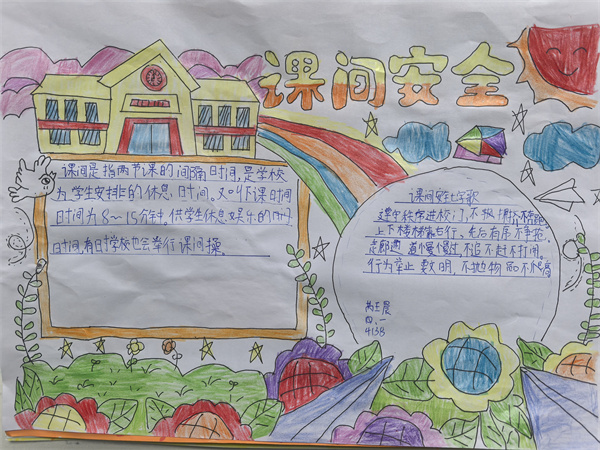 课间安全
课间是指两节课的间隔时间,是学校
为学生安排的休息时间。又叫下课时间
时间为8~15分钟,供学生休息娱乐的
时间,有时学校也会举行课间操。
课间安全歌
遵守秩序进校门,不
上下楼梯靠右行,先后有序不争抢
走廊通道慢慢过,不追不赶不打闹。
行为举止文明,不抛物
四、一
4138